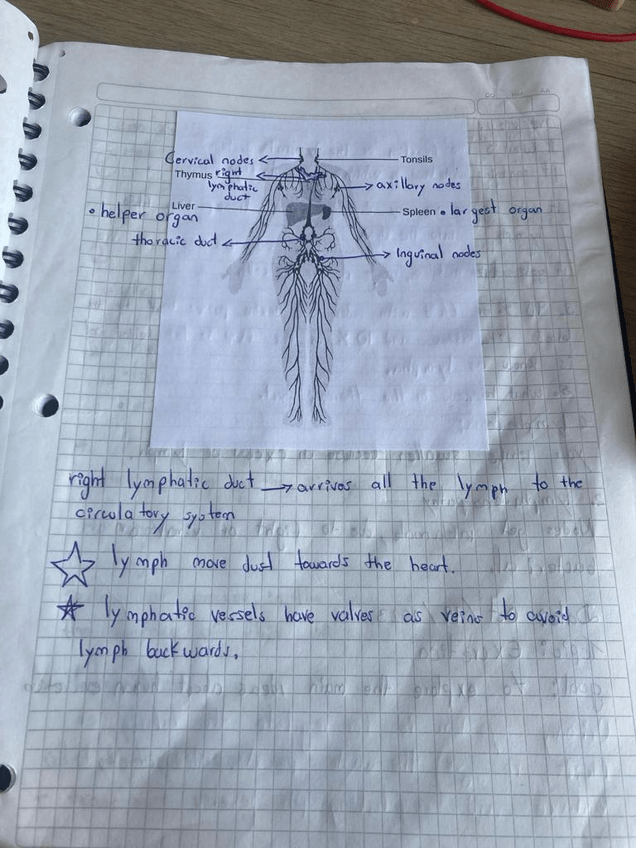 Cervical nodes
Tonsils
Thymus right lymphatic duct
axillary nodes
Liver
• helper organ
Spleen • largest organ
thoracic duct
Inguinal nodes
right lymphatic duct → arrives all the lymph to the
circulatory system
☆ lymph move dust towards the heart.
★ lymphatic vessels have valves as veins to avoid
lymph backwards.